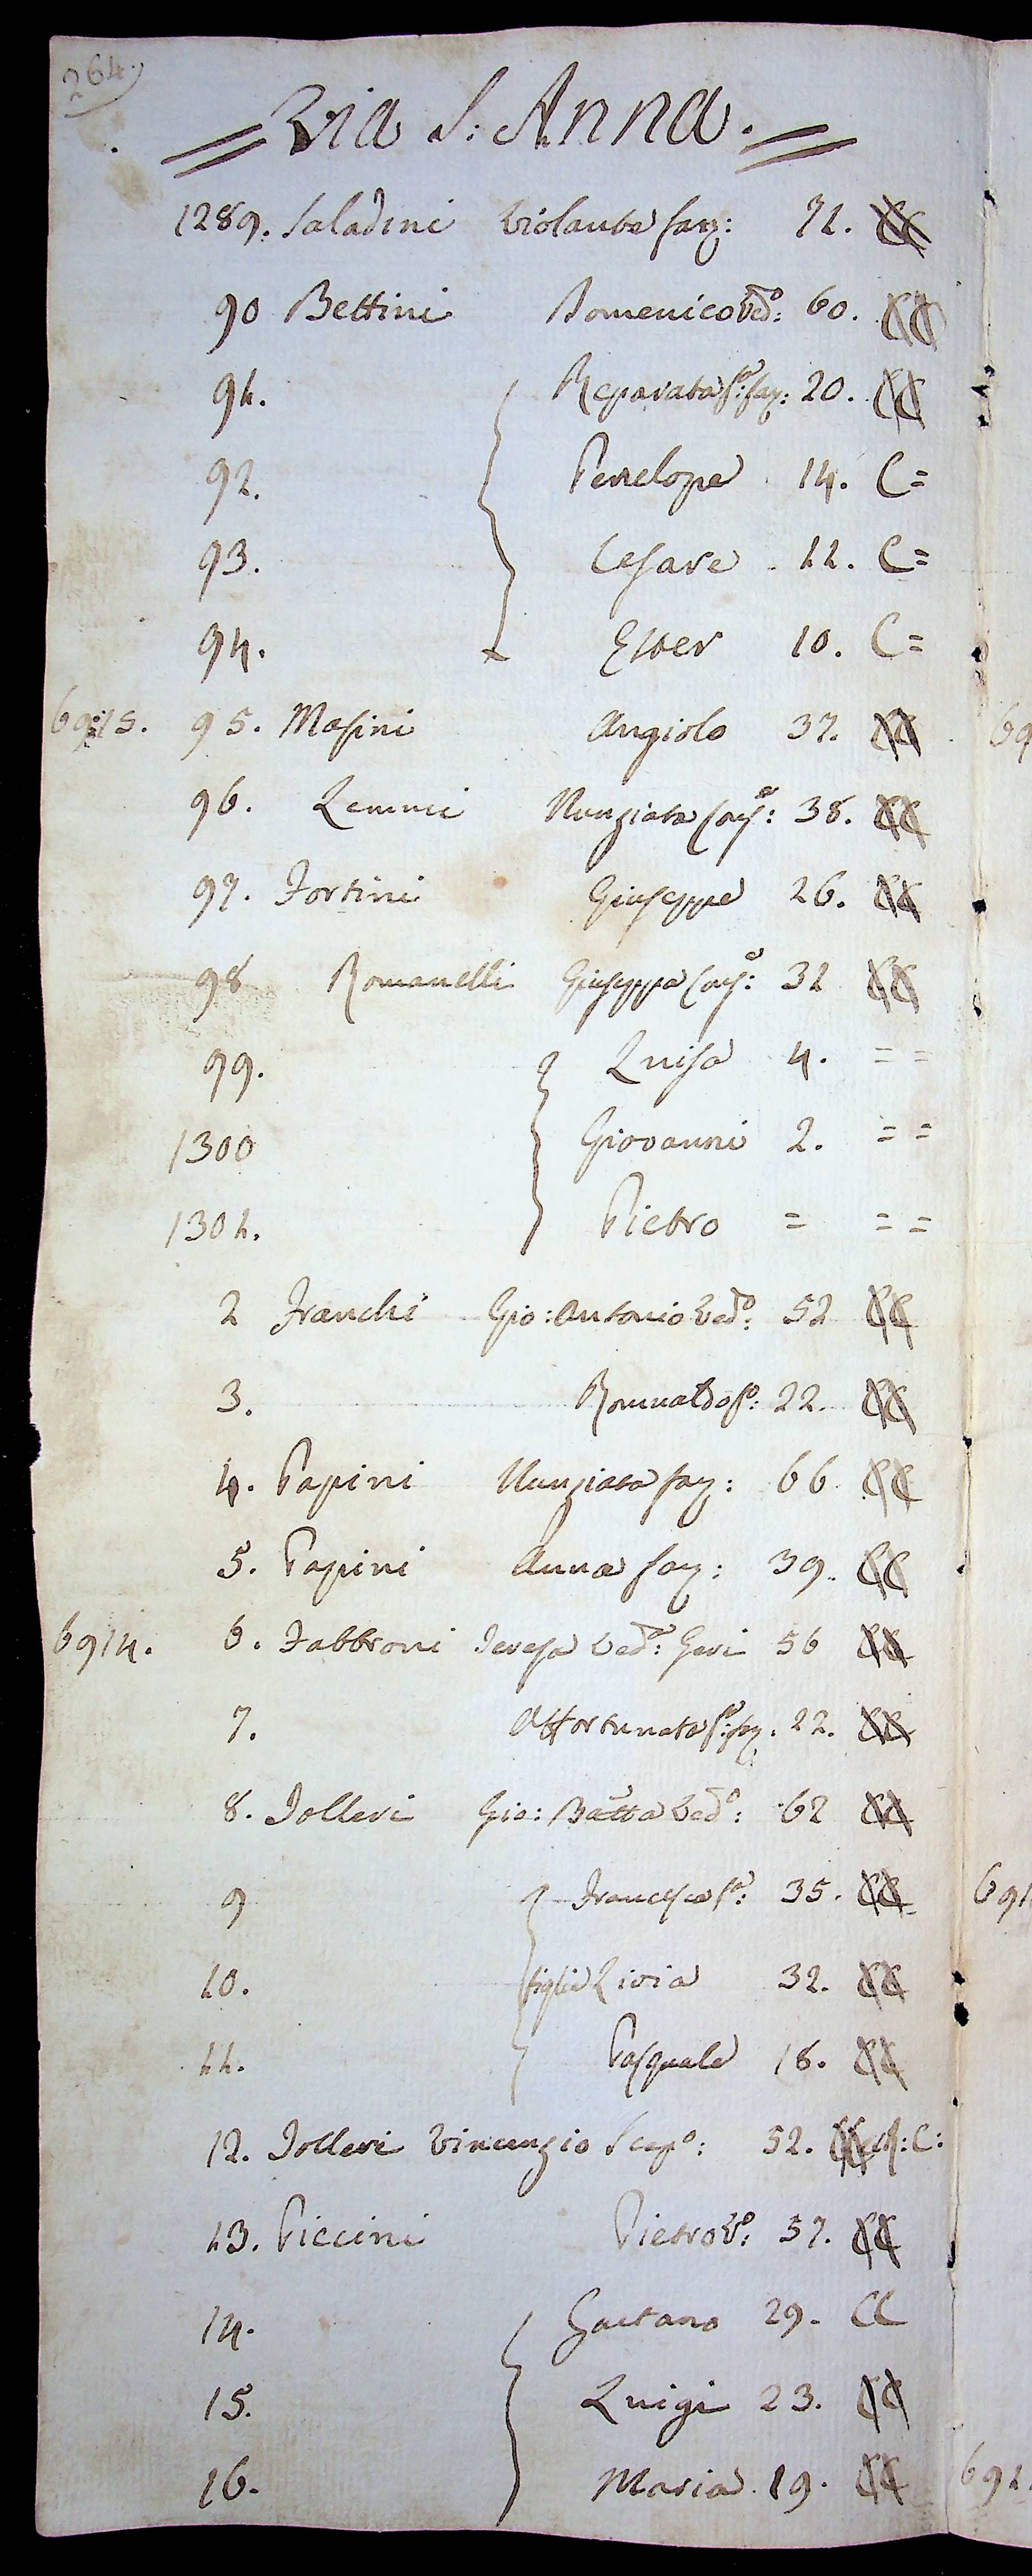 264.
Via S: Anna.
1289. Saladini Violante fan: 71.
90 Bettini Domenico Ved:o 60. CC
91. Reparata f:a fan: 20. CC
92. Penelope 14. C=
93. Cesare 11. C=
94. Ester 10. C=
6913. 95. Masini Angiolo 37. CC
96. Lemmi Nunziata Con:e 38. CC
97. Fortini Giuseppe 26. CC
98 Romanelli Giuseppa Con:e 31 CC
99. Luisa 4. = =
1300 Giovanni 2. = =
1301. Pietro = = =
2 Franchi Gio: Antonio Ved:o 52 CC
3. Romualdo f:o 22. CC
4. Papini Nunziata fan: 66 CC
5. Papini Anna fan: 39. CC
6914. 6. Fabbroni Teresa Ved:a Geri 56 CC
7. Affortunata f:a fan. 22. CC
8. Tolleri Gio: Batta Ved:o 62 CC
9 Francesca f:a 35. CC
10. figli Livia 32. CC
11. Pasquale 18. CC
12. Tolleri Vincenzio Scap:o 52. C:
13. Piccini Pietro V:o 57. CC
14. Gaetano 29. CC
15. Luigi 23. CC
16. Maria 19. CC